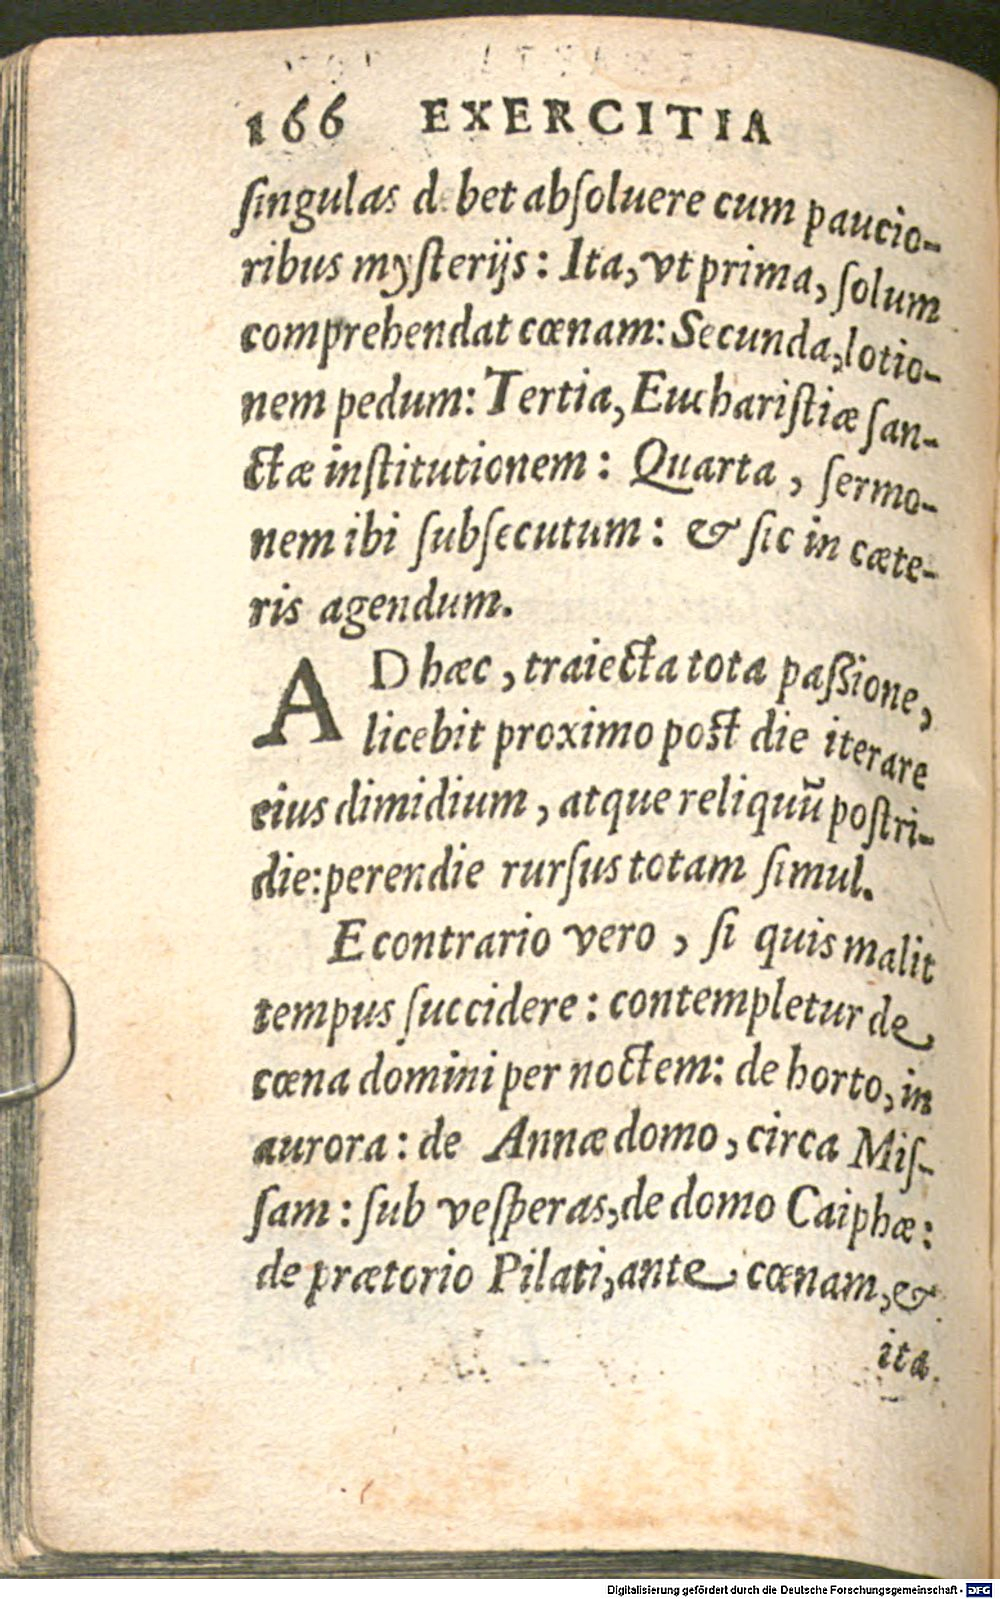 166 EXERCITIA
ſingulas d bet abſoluere cum paucio-
ribus myſterijs: Ita, vt prima, ſolum
comprehendat cœnam: Secunda, lotio-
nem pedum: Tertia, Euchariſtiæ ſan-
ctæ inſtitutionem: Quarta, ſermo-
nem ibi ſubſecutum: & ſic in cæte-
ris agendum.
AD hæc, traiecta tota paſsione,
licebit proximo post die iterare
eius dimidium, atque reliquū poſtri-
die: perendie rurſus totam ſimul.
E contrario vero, ſi quis malit
tempus ſuccidere: contempletur de
cœna domini per noctem: de horto, in
aurora: de Annæ domo, circa Miſ-
ſam: ſub veſperas, de domo Caiphæ:
de prætorio Pilati, ante cœnam, &
ita
Digitalisierung gefördert durch die Deutsche Forschungsgemeinschaft - DFG